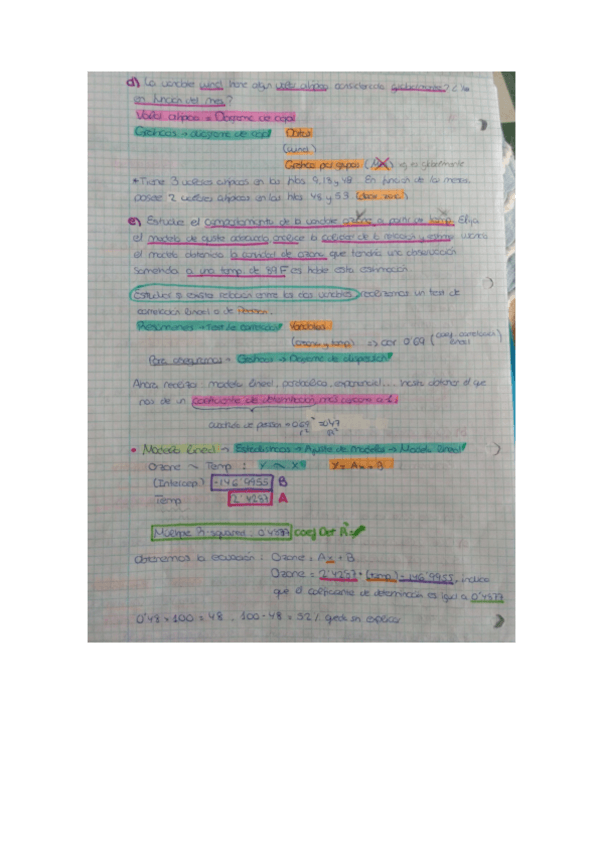 d) La variable wind tiene algún valor atípico considerada globalmente? ¿Y
en función del mes?
Valor atípico = Diagrama de caja
Gráficas → diagrama de caja Datos
(wind)
Gráfica por grupos ( ) es globalmente
* Tiene 3 valores atípicos en las hilas 9, 18 y 48. En función de los meses,
posee 2 valores atípicos en las hilas 48 y 53.
e) Estudie el comportamiento de la variable ozono a partir de temp. Elija
el modelo de ajuste adecuado, analice la calidad de la relación y estime usando
el modelo obtenido la cantidad de ozono que tendría una observación
sometida a una temp. de 89 F es fiable esta estimación.
Estudiar si existe relación entre las dos variables realizamos un test de
correlación lineal o de Pearson.
Resúmenes → Test de correlación Variables
(ozone y temp) => cor 0'69 (coef. correlación lineal)
Para asegurarnos = Gráficas → Diagrama de dispersión
Ahora, realizar: modelo lineal, parabólico, exponencial... hasta obtener el que
nos dé un coeficiente de determinación más cercano a 1.
cuadrado de pearson = 0'69² = 0'47
r² R²
• Modelo lineal → Estadísticos → Ajuste de modelos → Modelo lineal
Ozone ~ Temp : Y ~ X Y = Ax + B
(Intercep.) -146'9955 B
Temp 2'4287 A
Multiple R-squared: 0'4877 coef Det R²
obtenemos la ecuación: Ozone = Ax + B
Ozone = 2'4287 * (temp) - 146'9955, indica
que el coeficiente de determinación es igual a 0'4877
0'48 x 100 = 48. 100 - 48 = 52% queda sin explicar